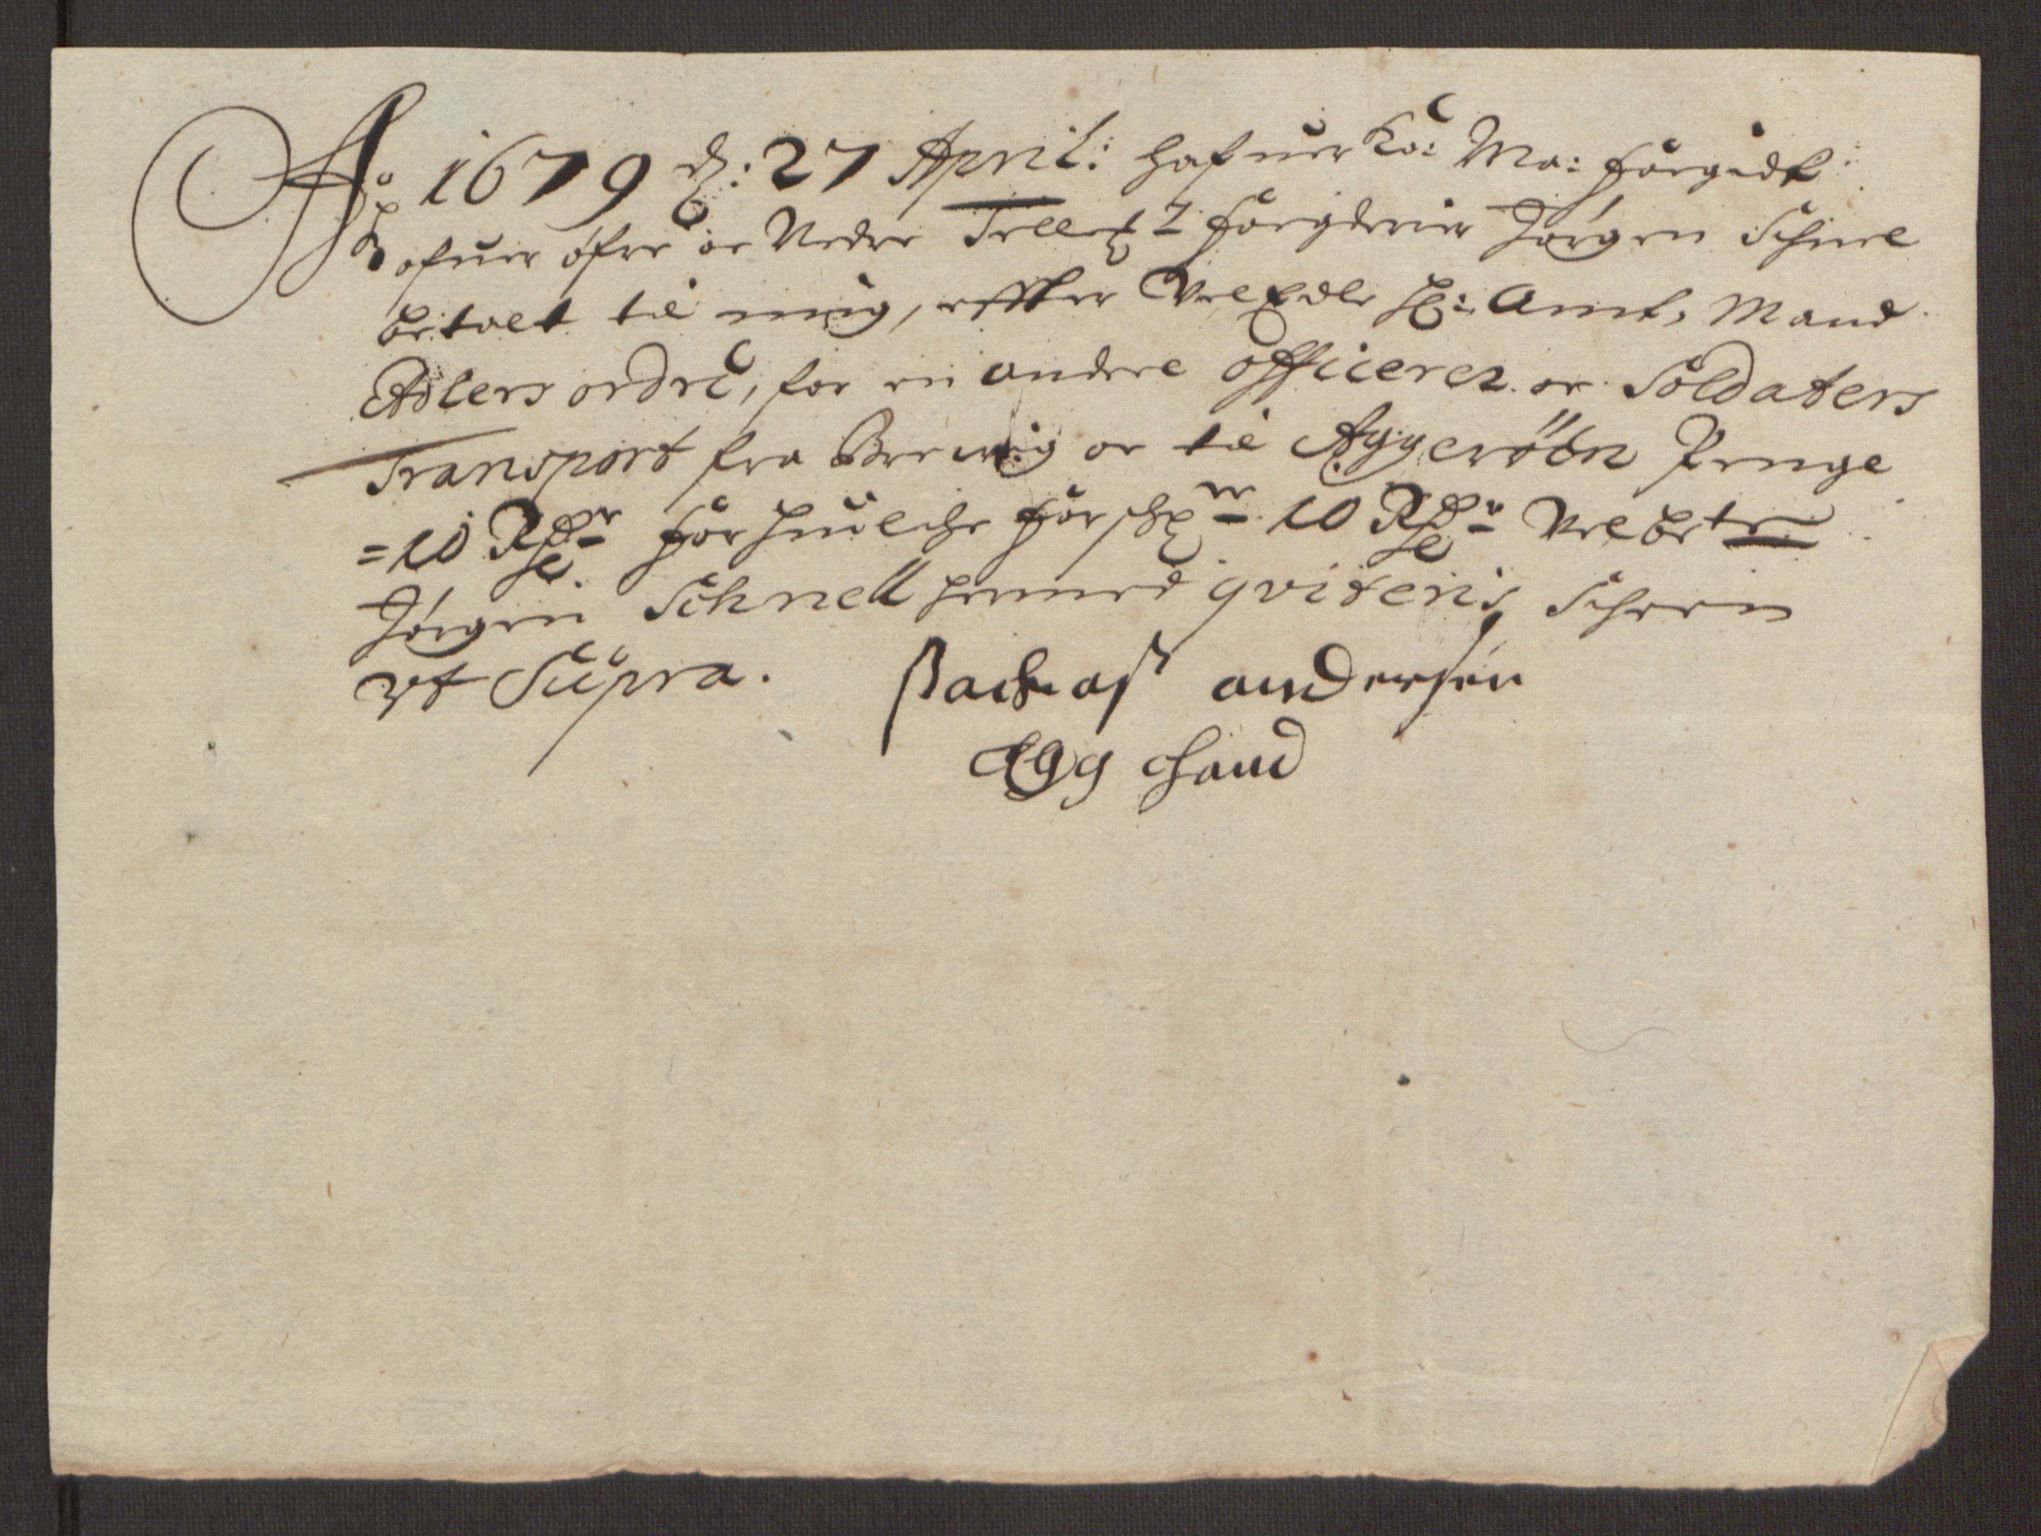 Ao 1679 d: 27 April: hafuer Ko: Ma: fougidt
ofuer öfre oc Nedre Tellem: fougderier Jörgen Schnel
betalt til mig, effter Vel Edle H: Amt, Mand
Adlers ordre, for en andere officerer oc Soldaters
Transport fra Brewig oc til Aggeröen Penge
= 10 Rdr for huilche forschr 10 Rdr Velbete
Jörgen Schnell hermed qviteris, Schreen
vt Supra. Backas andersen
Egg hand